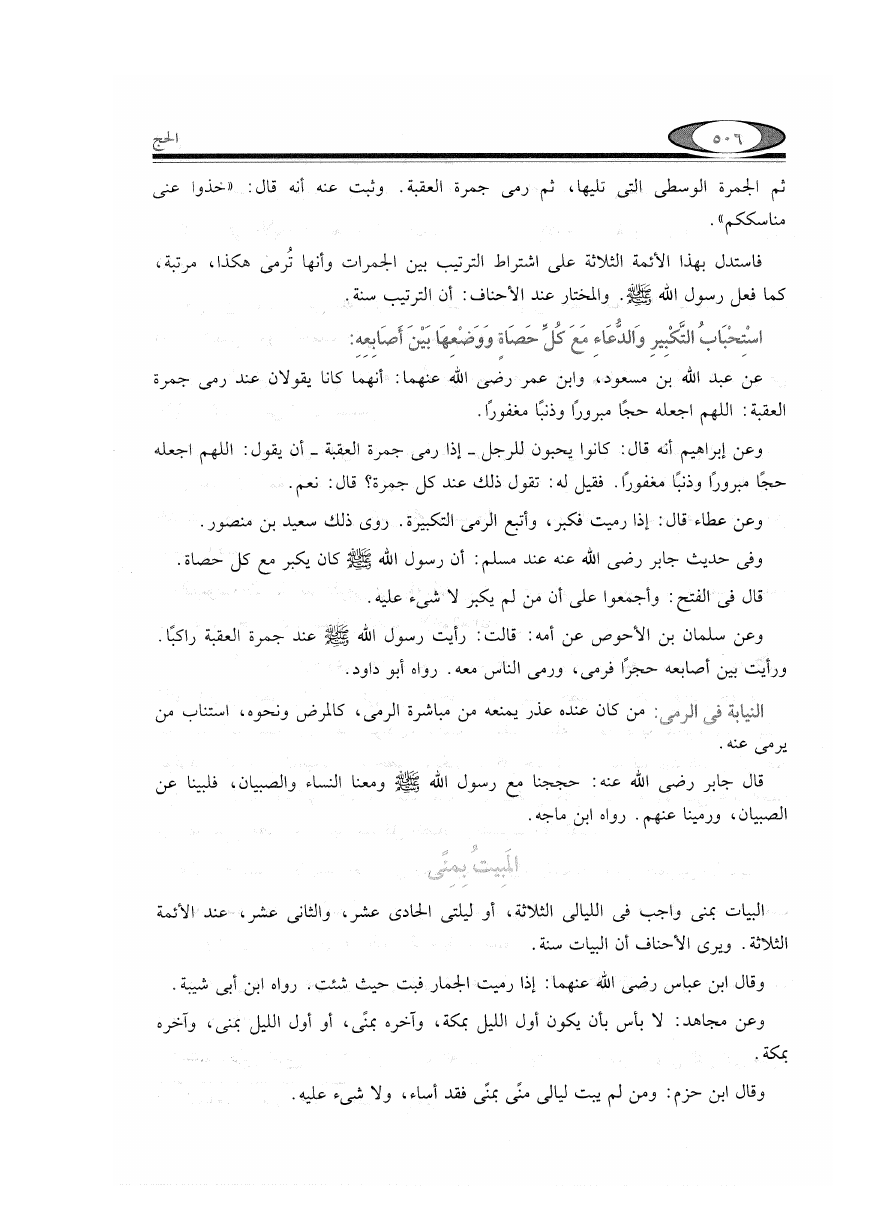 ٥٠٦
الحج
ثم الجمرة الوسطى التى تليها، ثم رمى جمرة العقبة. وثبت عنه أنه قال: «خذوا عنى
مناسككم».
فاستدل بهذا الأئمة الثلاثة على اشتراط الترتيب بين الجمرات وأنها تُرمى هكذا، مرتبة،
كما فعل رسول الله ﷺ. والمختار عند الأحناف: أن الترتيب سنة.
اسْتِحْبَابُ التَّكْبِيرِ وَالدُّعَاءِ مَعَ كُلِّ حَصَاةٍ وَوَضْعِهَا بَيْنَ أَصَابِعِهِ:
عن عبد الله بن مسعود، وابن عمر رضى الله عنهما: أنهما كانا يقولان عند رمى جمرة
العقبة: اللهم اجعله حجًا مبرورًا وذنبًا مغفورًا.
وعن إبراهيم أنه قال: كانوا يحبون للرجل ـ إذا رمى جمرة العقبة ـ أن يقول: اللهم اجعله
حجًا مبرورًا وذنبًا مغفورًا. فقيل له: تقول ذلك عند كل جمرة؟ قال: نعم.
وعن عطاء قال: إذا رميت فكبر، وأتبع الرمى التكبيرة. روى ذلك سعيد بن منصور.
وفى حديث جابر رضى الله عنه عند مسلم: أن رسول الله ﷺ كان يكبر مع كل حصاة.
قال فى الفتح: وأجمعوا على أن من لم يكبر لا شىء عليه.
وعن سلمان بن الأحوص عن أمه: قالت: رأيت رسول الله ﷺ عند جمرة العقبة راكبًا.
ورأيت بين أصابعه حجرًا فرمى، ورمى الناس معه. رواه أبو داود.
النيابة فى الرمى: من كان عنده عذر يمنعه من مباشرة الرمى، كالمرض ونحوه، استناب من
يرمى عنه.
قال جابر رضى الله عنه: حججنا مع رسول الله ﷺ ومعنا النساء والصبيان، فلبينا عن
الصبيان، ورمينا عنهم. رواه ابن ماجه.
المَبِيتُ بِمِنًى
البيات بمنى واجب فى الليالى الثلاثة، أو ليلتى الحادى عشر، والثانى عشر، عند الأئمة
الثلاثة. ويرى الأحناف أن البيات سنة.
وقال ابن عباس رضى الله عنهما: إذا رميت الجمار فبت حيث شئت. رواه ابن أبى شيبة.
وعن مجاهد: لا بأس بأن يكون أول الليل بمكة، وآخره بمنًى، أو أول الليل بمنى، وآخره
بمكة.
وقال ابن حزم: ومن لم يبت ليالى منًى بمنًى فقد أساء، ولا شىء عليه.